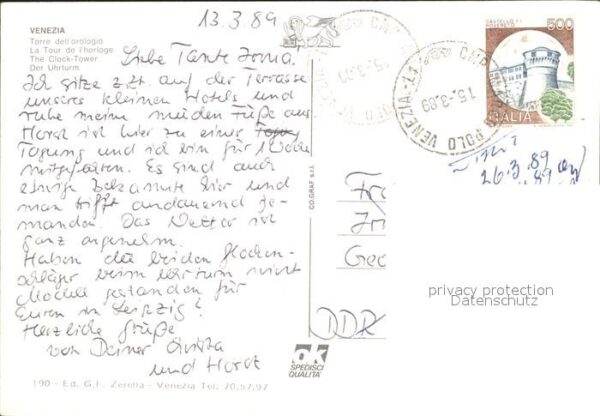 13.3.89
VENEZIA
Torre dell'orologio
La Tour de l'horloge
The Clock-Tower
Der Uhrturm
Liebe Tante Irma.
Ich sitze z.Zt. auf der Terrasse
unseres kleinen Hotels und
ruhe meine müden Füße aus
Horst ist hier zu einer
Tagung und ich bin für 1 Woche
mitgefahren. Es sind auch
einige Bekannte hier und
man trifft andauernd je-
manden. Das Wetter ist
ganz angenehm.
Haben die beiden Glocken-
schläger beim Uhrturm nicht
Modell gestanden für
Euren in Leipzig?
Herzliche Grüße
von Deiner
und Horst
190 - Ed. G.F. Zerella - Venezia Tel. 70.57.97
CO.GRAF s.r.l.
ok
SPEDISCI
QUALITA'
500
ITALIA
15.-3.89
POLO VENEZIA
26.3.89
Fr
Ir
Geo
DDR
privacy protection
Datenschutz